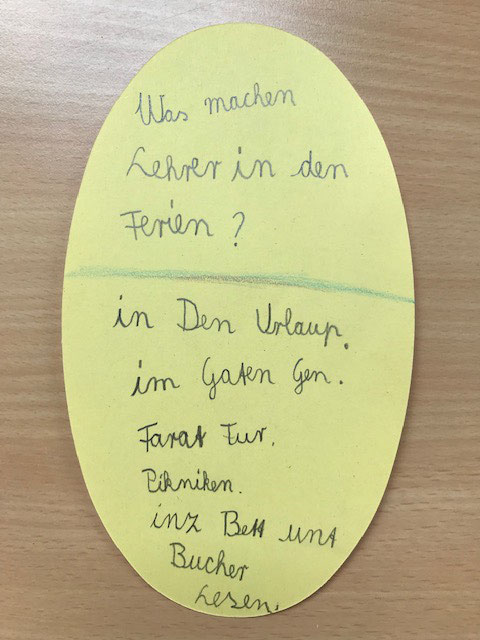 Was machen
Lehrer in den
Ferien ?
in Den Urlaup.
im Gaten Gen.
Farat Fur.
Pikniken.
inz Bett unt
Bucher
Lesen.